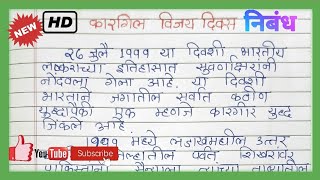 NEW HD कारगिल विजय दिवस निबंध
२६ जुलै १९९९ या दिवशी भारतीय
लष्कराच्या इतिहासात सुवर्णाक्षरांनी
नोंदवला गेला आहे. या दिवशी
भारताने जगातील सर्वात कठीण
युद्धापैकी एक म्हणजे कारगिल युद्ध
जिंकले आहे.
१९९९ मध्ये लडाखमधील उत्तर
You Tube Subscribe पर्वत शिखरावर